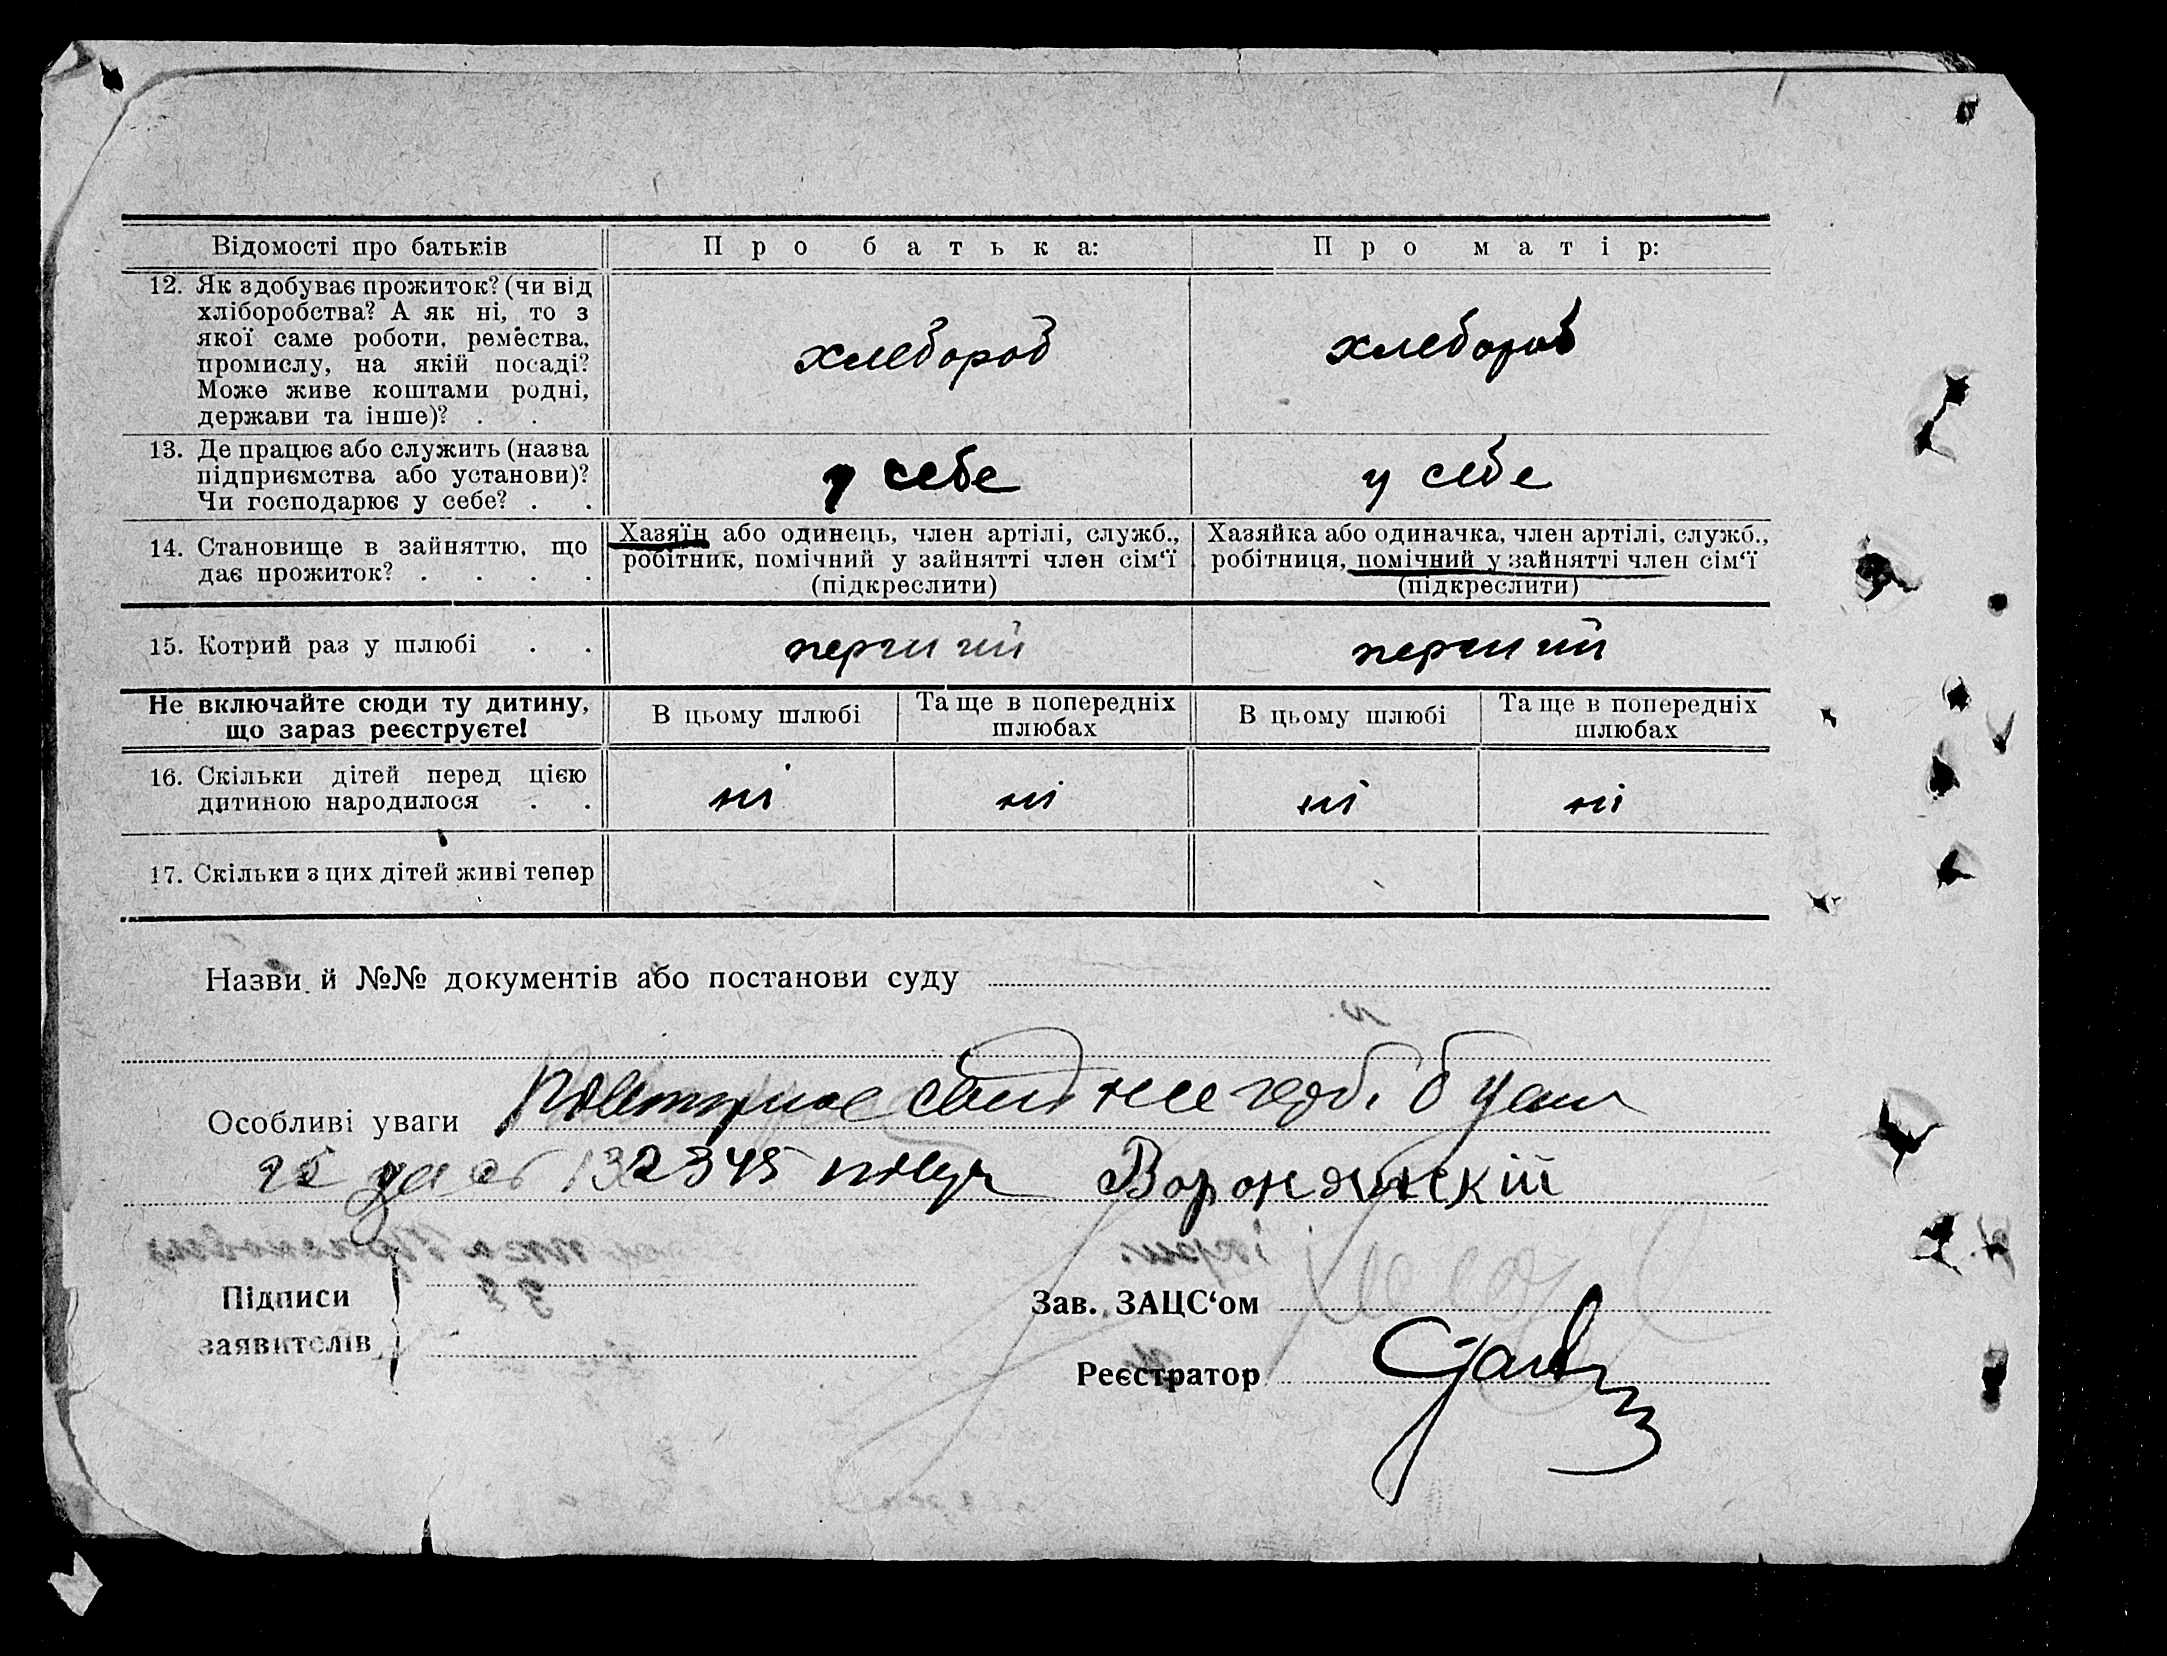 Відомості про батьків
Про батька:
Про матір:
12. Як здобуває прожиток? (чи від
хліборобства? А як ні, то з
якої саме роботи, ремества,
промислу, на якій посаді?
Може живе коштами родні,
держави та інше)? . .
хлебороб
хлебороб
13. Де працює або служить (назва
підприємства або установи)?
Чи господарює у себе? . .
у себе
у себе
14. Становище в зайняттю, що
дає прожиток? . . . .
Хазяїн або одинець, член артілі, служб.,
робітник, помічний у зайнятті член сім‘ї
(підкреслити)
Хазяйка або одиначка, член артілі, служб.,
робітниця, помічний у зайнятті член сім‘ї
(підкреслити)
15. Котрий раз у шлюбі . .
перший
перший
Не включайте сюди ту дитину,
що зараз реєструєте!
В цьому шлюбі
Та ще в попередніх
шлюбах
В цьому шлюбі
Та ще в попередніх
шлюбах
16. Скільки дітей перед цією
дитиною народилося . .
ні
ні
ні
ні
17. Скільки з цих дітей живі тепер
Назви й №№ документів або постанови суду
Особливі уваги
132345
Підписи
заявителів
Зав. ЗАЦС‘ом
Реєстратор